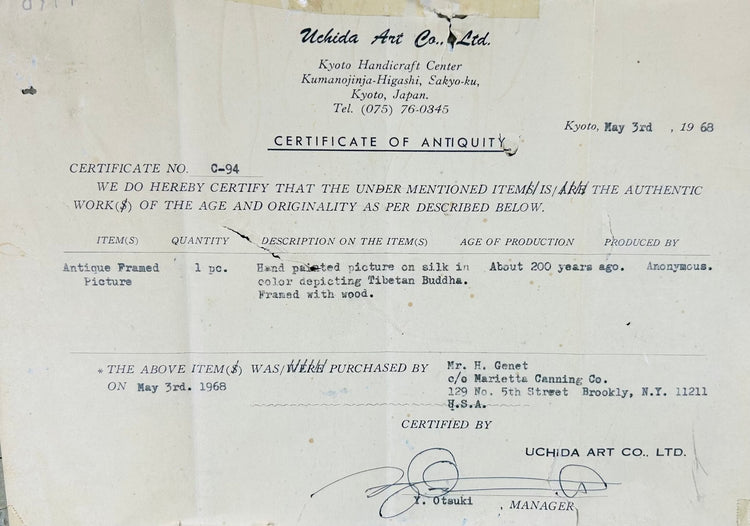 Uchida Art Co., Ltd.
Kyoto Handicraft Center
Kumanojinja-Higashi, Sakyo-ku,
Kyoto, Japan.
Tel. (075) 76-0345
Kyoto, May 3rd , 1968
CERTIFICATE OF ANTIQUITY
CERTIFICATE NO. C-94
WE DO HEREBY CERTIFY THAT THE UNDER MENTIONED ITEMS/IS/ARE THE AUTHENTIC
WORK(S) OF THE AGE AND ORIGINALITY AS PER DESCRIBED BELOW.
ITEM(S) QUANTITY DESCRIPTION ON THE ITEM(S) AGE OF PRODUCTION PRODUCED BY
Antique Framed 1 pc. Hand painted picture on silk in About 200 years ago. Anonymous.
Picture color depicting Tibetan Buddha.
Framed with wood.
* THE ABOVE ITEM(S) WAS/WERE PURCHASED BY Mr. H. Genet
c/o Marietta Canning Co.
ON May 3rd. 1968 129 No. 5th Street Brookly, N.Y. 11211
U.S.A.
CERTIFIED BY
UCHIDA ART CO., LTD.
Y. Otsuki , MANAGER